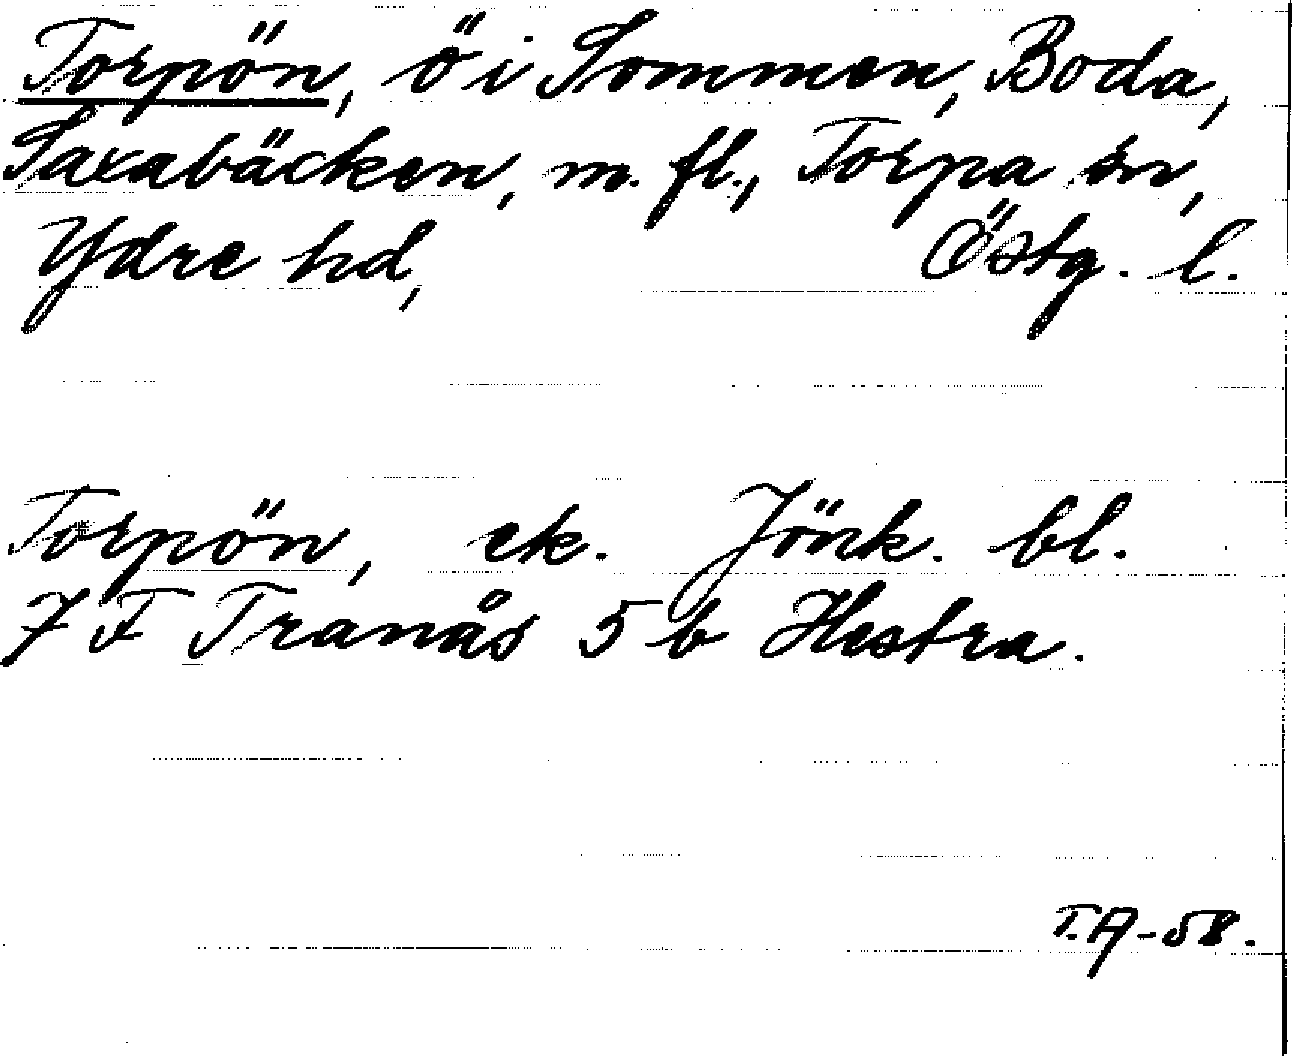 Torpön, ö i Sommen, Boda,
Saxabäcken, m. fl., Torpa sn,
Ydre hd, Östg. l.
Torpön, ek. Jönk. bl.
7 F Tranås 5 b Hestra.
T.A-58.